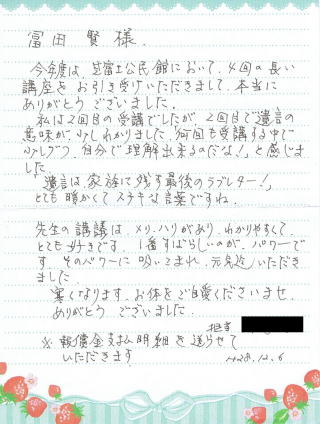 冨田 賢 様.
今年度は、芝富士公民館において、4回の長い
講座をお引き受けいただきまして、本当に
ありがとうございました。
私は2回目の受講でしたが、2回目で遺言の
意味が少しわかりました。何回も受講する中で
少しずつ、自分で理解出来るのだな!と感じま
した。
「遺言は、家族に残す最後のラブレター!」
とても暖かくてステキな言葉ですね。
先生の講議は、メリ、ハリがあり、わかりやすくて、
とても好きです。1番すばらしいのが、パワーで
す。そのパワーに吸いこまれ、元気迄いただき
ました。
寒くなります。お体をご自愛くださいませ。
ありがとうございました。
担当
※報償金支払明細を送らせて
いただきます
H28.12.6